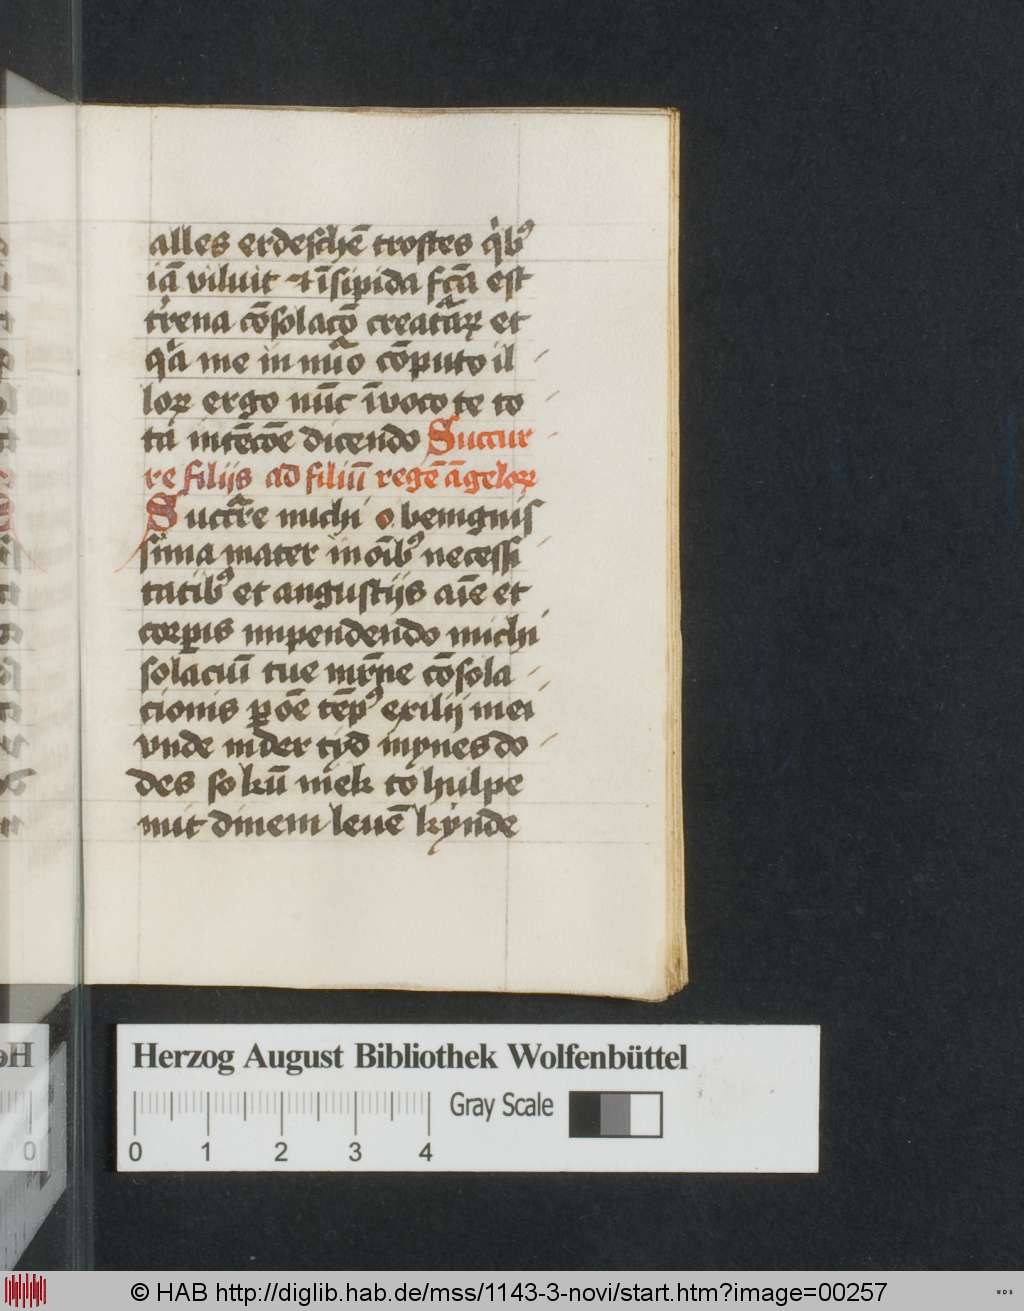 alles erdeschē trostes qͥbꝰ
iā viluit ⁊ īsipida fc̄a est
tͬrena cōsolacō creatᷓaꝝ et
qͥa me in nūo cōputo il
loꝝ ergo nūc īvoco te to
ta intēcōe dicendo Succur
re filijs ad filiū regē āgeloꝝ
Succᷓre michi o benignis
sima mater in oībꝰ necessi
tatibꝰ et angustijs aīe et
corꝑis impendendo michi
solaciū tue mr̄ne cōsola
cionis ꝑ oē tēpꝰ exilij mei
vnde in der tyd mynes do
des so kū niek to hulpe
mit dinem leuē kynde
Herzog August Bibliothek Wolfenbüttel
Gray Scale
0 1 2 3 4
© HAB http://diglib.hab.de/mss/1143-3-novi/start.htm?image=00257